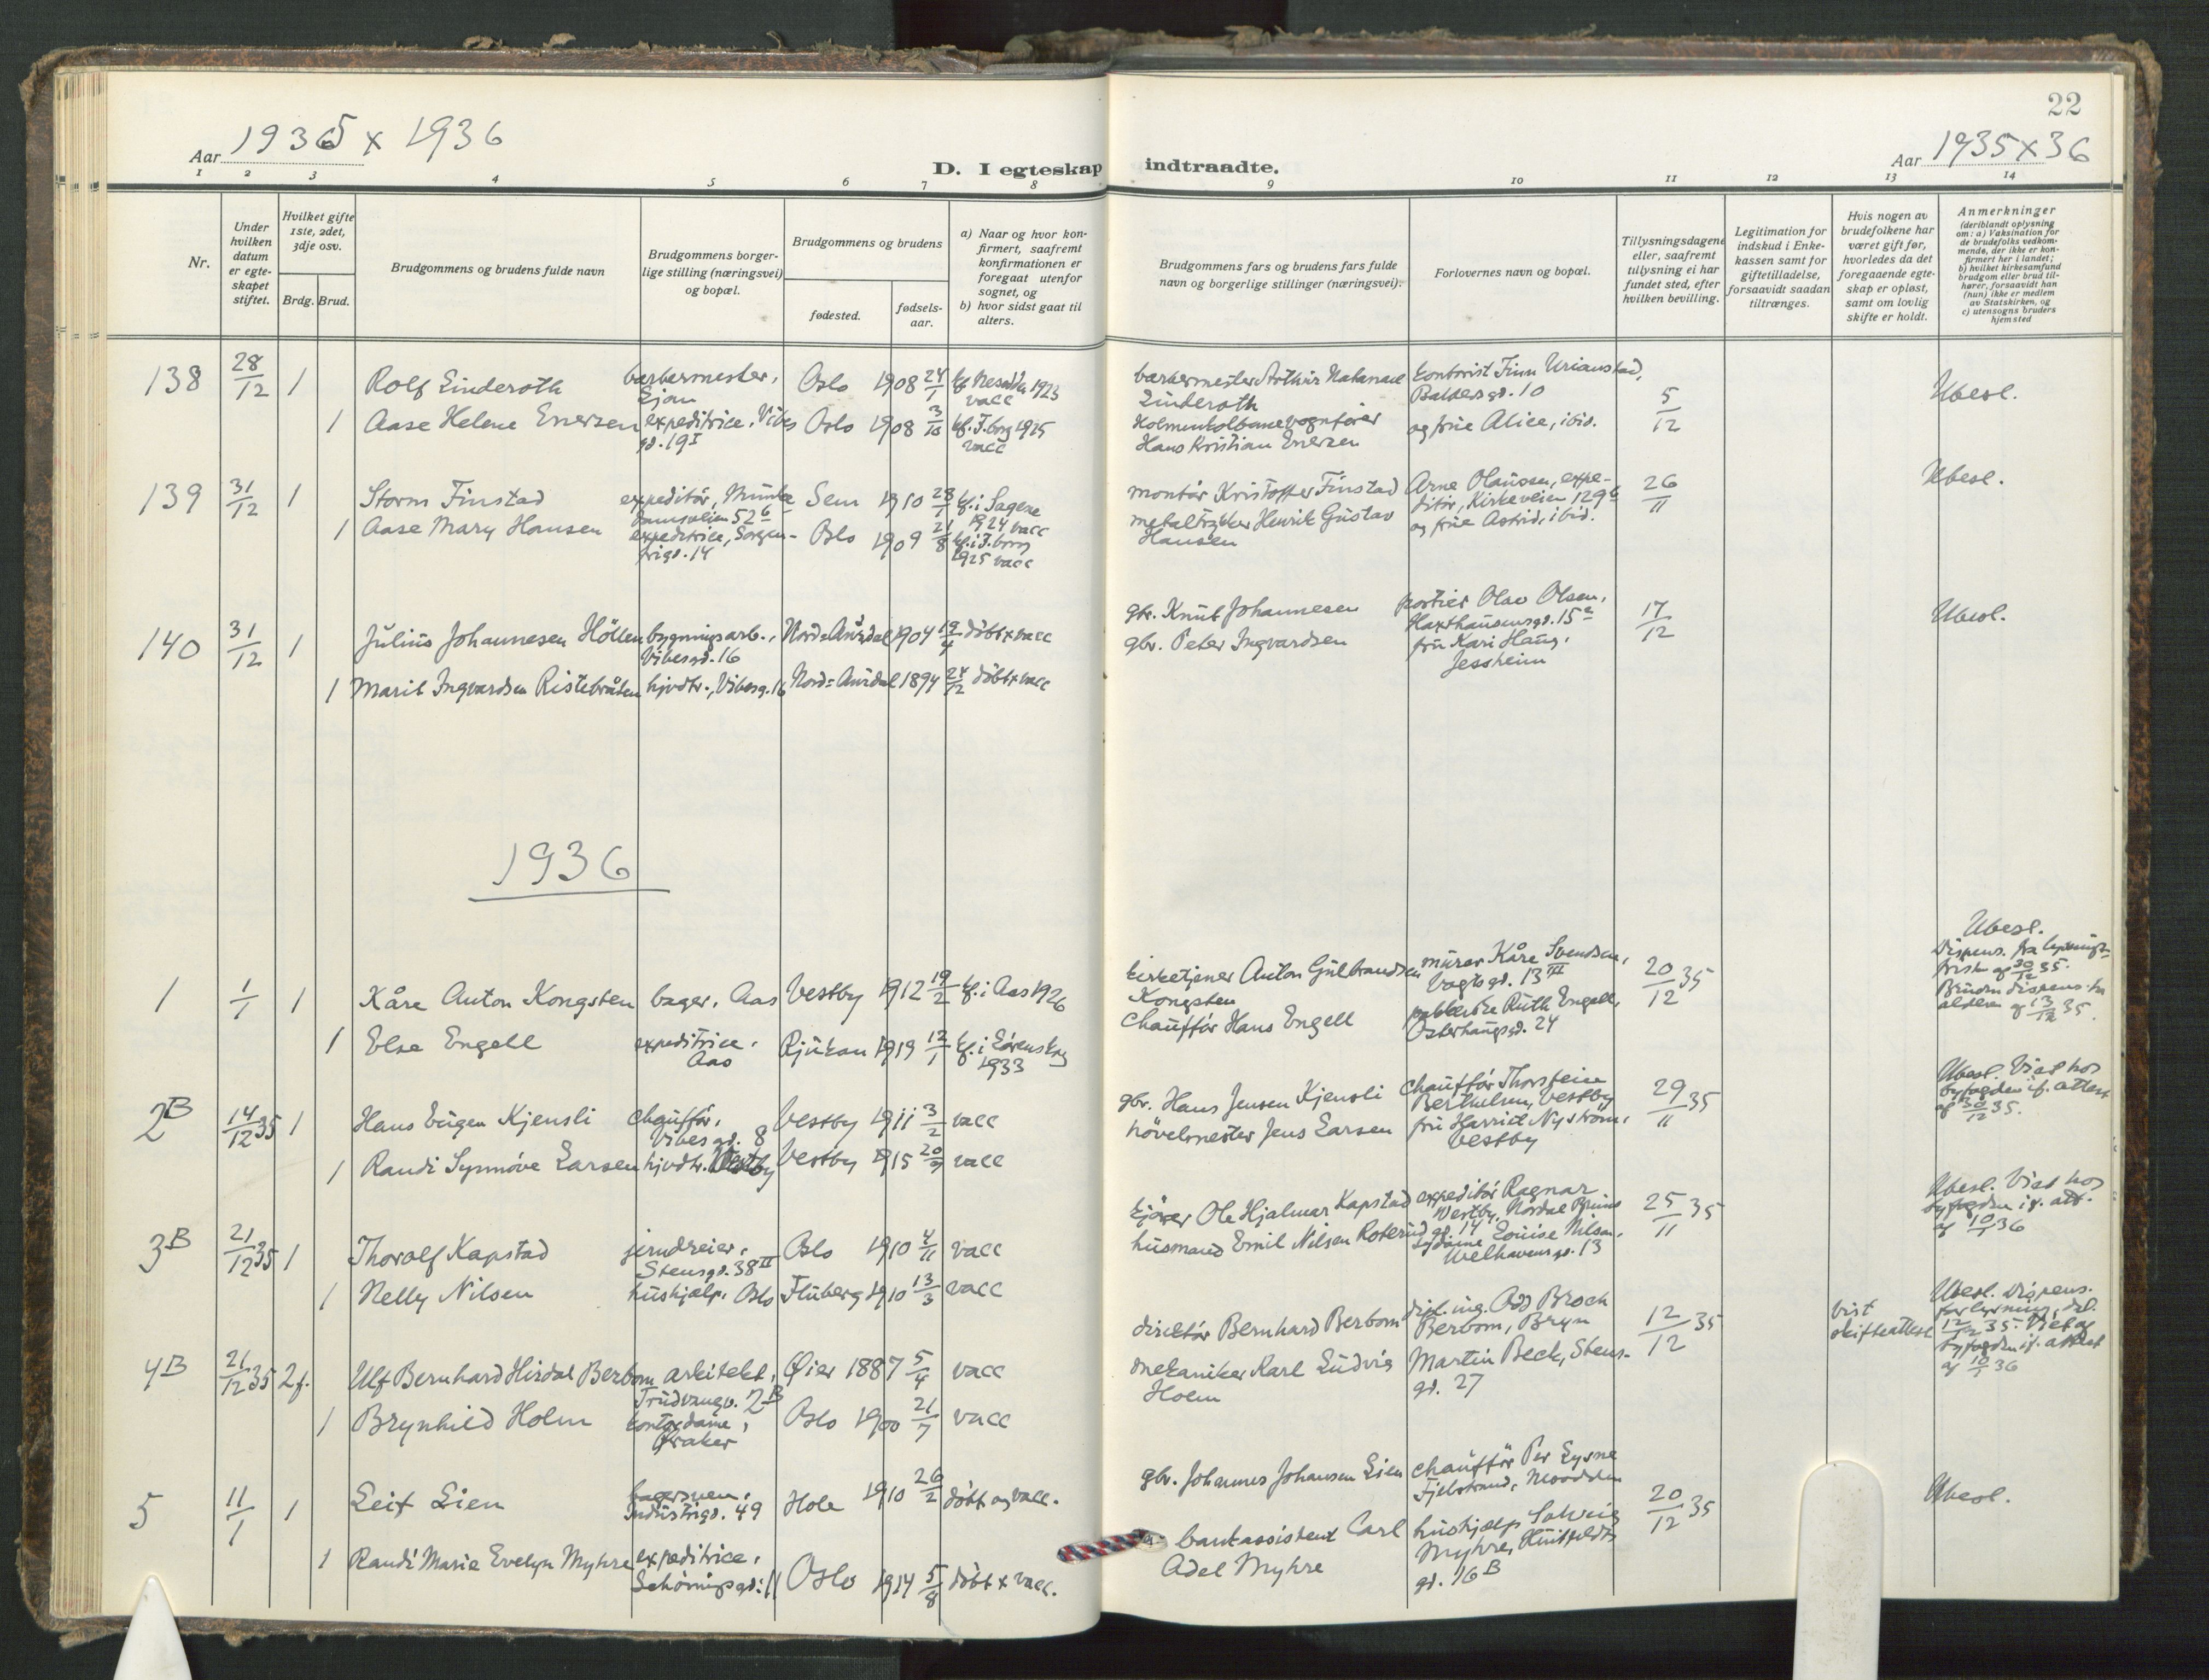 22
Aar 1935 x 1936
Aar 1935 x 36
D. I egteskap indtraadte.
1 2 3 4 5 6 7 8 9 10 11 12 13 14
Nr.
Under hvilken datum er egteskapet stiftet.
Hvilket gifte 1ste, 2det, 3dje osv.
Brdg. Brud.
Brudgommens og brudens fulde navn
Brudgommens borgerlige stilling (næringsvei) og bopæl.
Brudgommens og brudens
fødested.
fødselsaar.
a) Naar og hvor konfirmert, saafremt konfirmationen er foregaat utenfor sognet, og
b) hvor sidst gaat til alters.
Brudgommens fars og brudens fars fulde navn og borgerlige stillinger (næringsvei).
Forlovernes navn og bopæl.
Tillysningsdagene eller, saafremt tillysning ei har fundet sted, efter hvilken bevilling.
Legitimation for indskud i Enkekassen samt for giftetilladelse, forsaavidt saadan tiltrænges.
Hvis nogen av brudefolkene har været gift før, hvorledes da det foregaaende egteskap er opløst, samt om lovlig skifte er holdt.
Anmerkninger
(deriblandt oplysning om: a) Vaksination for de brudefolks vedkommende, der ikke er konfirmert her i landet; b) hvilket kirkesamfund brudgom eller brud tilhører, forsaavidt han (hun) ikke er medlem av Statskirken, og c) utensogns bruders hjemsted
138 28/12 1 Rolf Linderoth barbermester, Ljan Oslo 1908 24/1 kf. Nesodden 1923 vacc
barbermester Arthur Natanael Linderoth
kontorist Finn Urianstad, Baldersgd. 10
5/12
Ubesl.
1 Aase Helene Enersen expeditrice, Vibesgd. 19 I Oslo 1908 3/10 kf. F.borg 1925 vacc
Holmenkolbanevognfører Hans Kristian Enersen
og frue Alice, ibid.
139 31/12 1 Storm Finstad expeditør, Munkedamsveien 52 b Sem 1910 28/1 kf. i Sagene 1924 vacc
montør Kristoffer Finstad
Arne Olaussen, expeditør, Kirkeveien 129 b
26/11
Ubesl.
1 Aase Mary Hansen expeditrice, Sorgenfrigd. 14 Oslo 1909 21/8 kf. i F.borg 1925 vacc
metaltrykker Henrik Gustav Hansen
og frue Astrid, ibid.
140 31/12 1 Julius Johannesen Höllen bygningsarb., Vibesgd. 16 Nord-Aurdal 1904 19/4 döbt x vacc
gbr. Knut Johannesen
portier Olav Olsen, Haxthausensgd. 15 a
17/12
Ubesl.
1 Marit Ingvardsen Ristebråten hjvdtr., Vibesg. 16 Nord-Aurdal 1894 24/12 döbt x vacc
gbr. Peter Ingvardsen
fru Kari Haug, Jessheim
1936
1 1/1 1 Kåre Anton Kongsten bager, Aas Vestby 1912 19/2 kf. i Aas 1926
kirketjener Anton Gulbrandsen Kongsten
murer Kåre Svendsen, Vogtsgd. 13 III
20/12 35
Ubesl. Dispens. fra lysningsfrist af 30/12 35. Bruden dispens. fra alderen af 13/12 35.
1 Else Engell expeditrice, Aas Rjukan 1919 12/1 kf. i Lørenskog 1933
chauffør Hans Engell
pakkerske Ruth Engell, Østerhausgd. 24
2B 14/12 35 1 Hans Eugen Kjensli chauffør, Vibesgd. 8 Vestby 1911 3/2 vacc
gbr. Hans Jensen Kjensli
chauffør Thorstein Berthelsen, Vestby
29/11 35
Ubesl. Viet hos byfogden if. attest af 30/12 35.
1 Randi Synnöve Larsen hjvdtr. Vestby Vestby 1915 20/9 vacc
hövelmester Jens Larsen
fru Harriet Nyström, Vestby
3B 21/12 35 1 Thoralf Kapstad jerndreier, Stensgd. 38 II Oslo 1910 4/11 vacc
kjører Ole Hjalmar Kapstad
expeditör Ragnar Westby, Nordal Bruns gd. 14
25/11 35
Ubesl. Viet hos byfogden if. att. af 10/1 36
1 Nelly Nilsen hushjælp, Oslo Fluberg 1910 13/3 vacc
husmand Emil Nilsen Roterud
sydame Louise Nilsen, Welhavensgd. 13
4B 21/12 35 2f. Ulf Bernhard Hirdal Berbom arkitekt, Trudvangv. 2 B Øier 1887 5/4 vacc
direktør Bernhard Berbom
dipl. ing. Odd Brock Berbom, Bryn
12/12 35
vist skifteattest
Ubesl. Dispens. for lysning, dat. 12/12 35. Viet af byfogden if. attest af 10/1 36
1 Brynhild Holm kontordame, Øraker Oslo 1900 21/7 vacc
mekaniker Karl Ludvig Holm
Martin Beck, Stensgd. 27
5 11/1 1 Leif Lien bagersven, Industrigd. 49 Hole 1910 26/2 døbt og vacc.
gbr. Johannes Johansen Lien
chauffør Per Lysne Fjelstrand,
20/12 35
Ubesl.
1 Randi Marie Evelyn Myhre expeditrice, Schøningsgd. 11 Oslo 1914 5/8 døbt x vacc.
bankassistent Carl Adel Myhre
hushjælp Solveig Myhre, Huitfeldts gd. 16 B